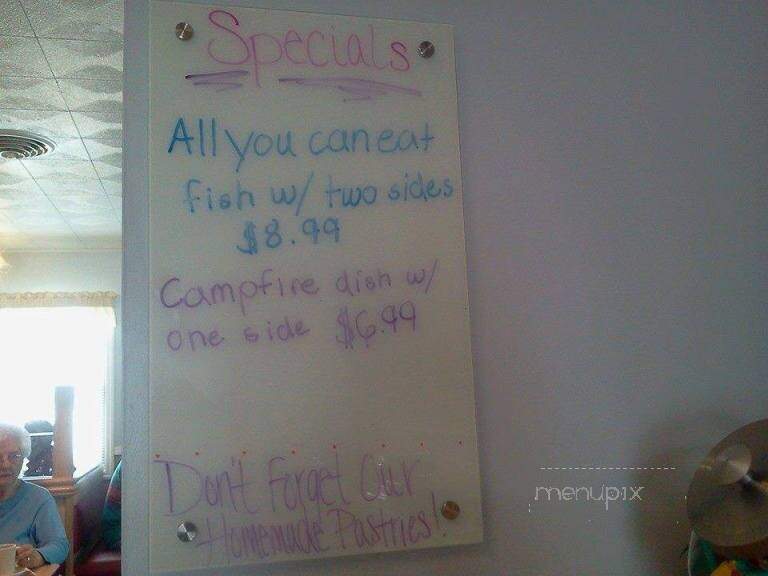 Specials
All you can eat
fish w/ two sides
$8.99
Campfire dish w/
one side $6.99
Don't Forget Our
Homemade Pastries!
menupix